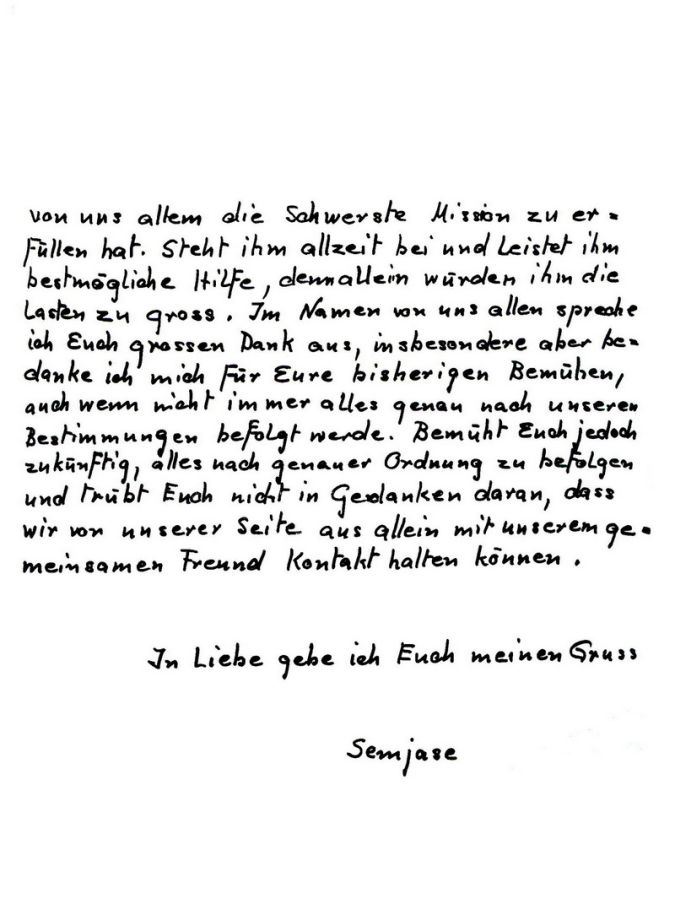 von uns allem die Schwerste Mission zu er=
füllen hat. Steht ihm allzeit bei und Leistet ihm
bestmögliche Hilfe, denn allein würden ihm die
Lasten zu gross. Im Namen von uns allen spreche
ich Euch grossen Dank aus, insbesondere aber be=
danke ich mich für Eure bisherigen Bemühen,
auch wenn nicht immer alles genau nach unseren
Bestimmungen befolgt werde. Bemüht Euch jedoch
zukünftig, alles nach genauer Ordnung zu befolgen
und trübt Euch nicht in Gedanken daran, dass
wir von unserer Seite aus allein mit unserem ge=
meinsamen Freund Kontakt halten können.
In Liebe gebe ich Euch meinen Gruss
Semjase